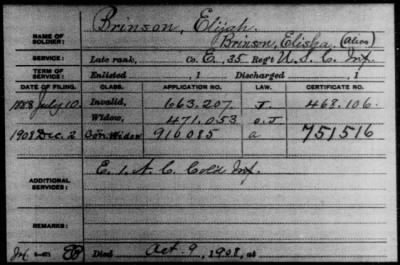 NAME OF SOLDIER: Brinson, Elijah.
Brinson, Elisha. (Alias)
SERVICE: Late rank, Co. E, 35 Reg't U. S. C. Inf.
TERM OF SERVICE: Enlisted , 1 Discharged , 1
DATE OF FILING. CLASS. APPLICATION NO. LAW. CERTIFICATE NO.
1888 July 10. Invalid, 663.207. J. 468.106.
Widow, 471.053 O.J
1908 Dec. 2 Con. Widow 910085 a 751516
ADDITIONAL SERVICES: E. 1. N. C. Cold Inf.
REMARKS:
Inf. Died Oct. 9, 1908, at